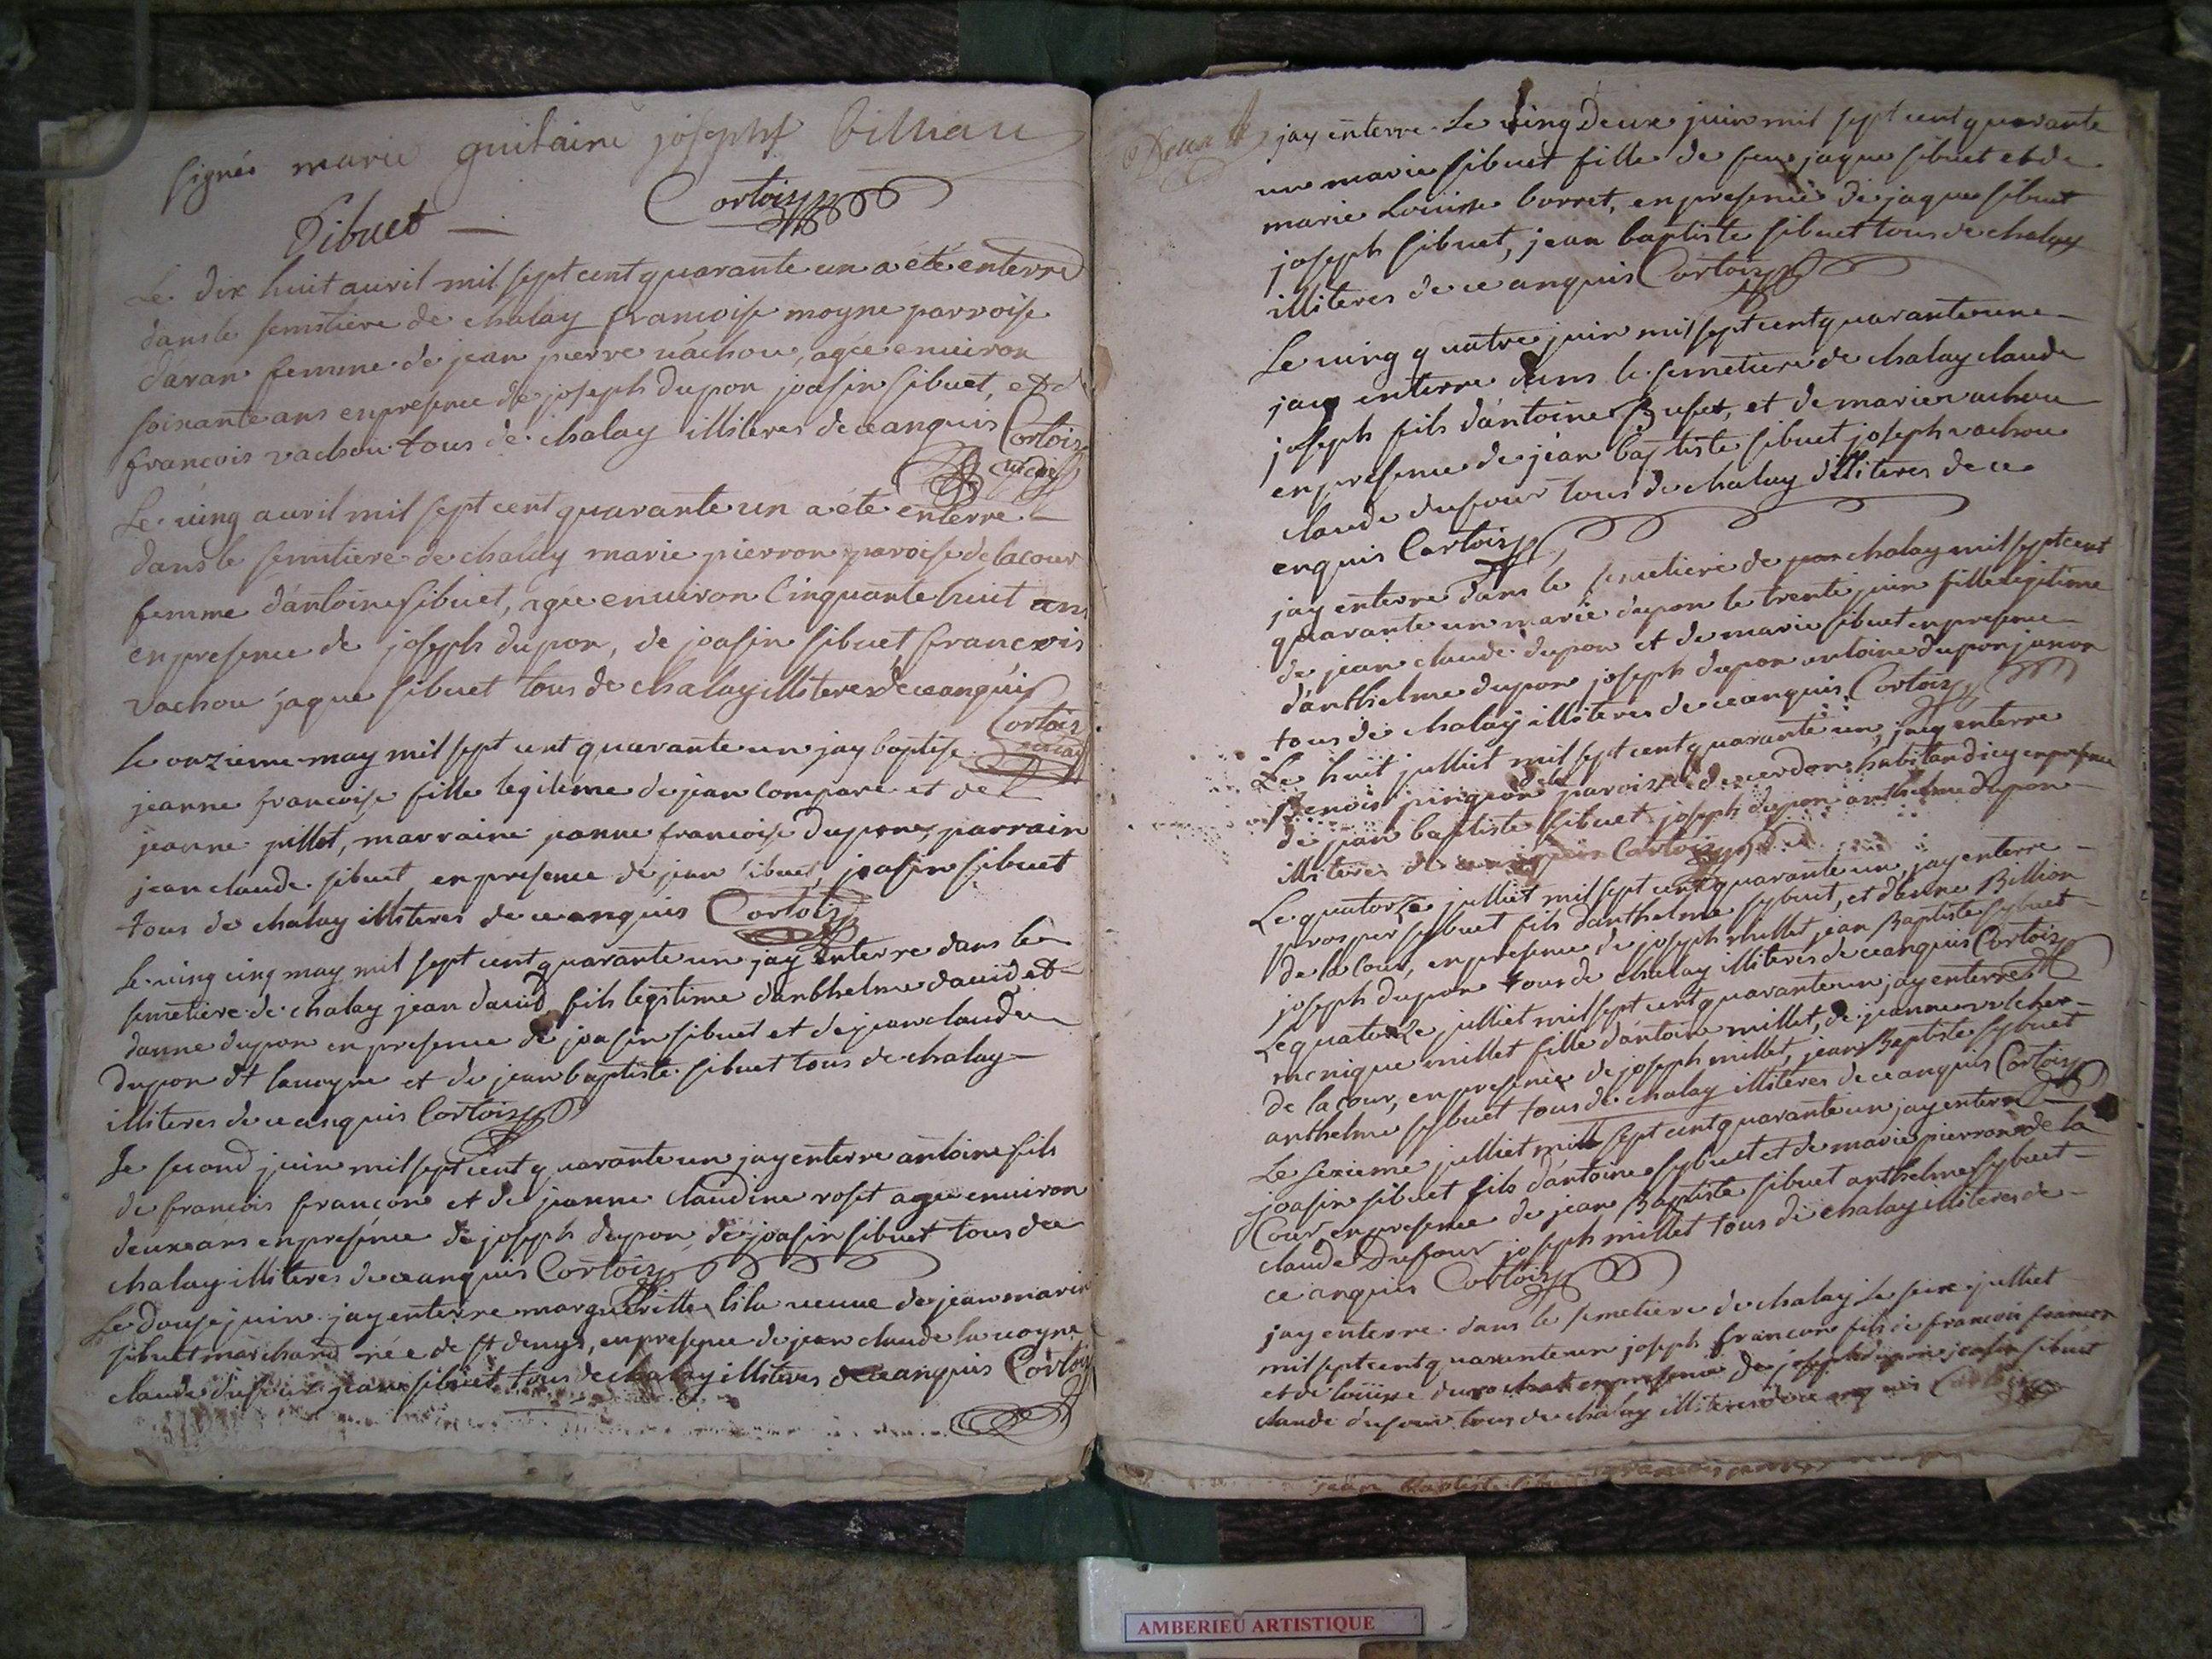 signés marie guilaine joseph billiau
Sibuet — Cortois
Le dix huit auril mil sept cent quarante un a été enterré
dans le semitiere de chalay francoise moyne parroise
d'aran femme de jean pierre vachou, agée enuiron
soixante ans en presence de joseph dupon joasin sibuet, et de
francois vachou tous de chalay illiteres de ce anquis Cortois
vicaire
Le uing auril mil sept cent quarante un a été enterre
dans le semitiere de chalay marie pierron paroise de lacour
femme d'antoine sibuet, agée enuiron Cinquante huit ans
en presence de joseph dupon, de joasin sibuet francois
vachou jaque sibuet tous de chalay illiteres de ce anquis
Cortois vicaire
Le onzieme may mil sept cent quarante un jay baptisé
jeanne francoise fille legiteme de jean compare et de
jeanne pillot, marraine jeanne francoise dupon, parrain
jean claude sibuet, en presence de jean sibuet, joasin sibuet
tous de chalay illiteres de ce anquis Cortois
Le uing cinq may mil sept cent quarante un jay enterre dans le
semetiere de chalay jean dauid fils legitime d'anthelme dauid et
d'anne dupon en presence de joasin sibuet et de jean claude
dupon dt lauoyne et de jean baptiste sibuet tous de chalay
illiteres de ce anquis Cortois
Le second juin mil sept cent quarante un jay enterre antoine fils
de francois francon et de jeanne Claudine roset agée enuiron
deux ans en presence de joseph dupon, de joasin sibuet tous de
chalay illiteres de ce anquis Cortois
Le douse juin jay enterre margueritte lila ueuue de jean marin
sibuet marchand née de st denys, en presence de jean claude lauoyne
claude dufour jean sibuet tous de chalay illiteres de ce anquis Cortois
jay enterre Le uing Deux juin mil sept cent quarante
un marie sibuet fille de feu jaque sibuet et de
marie Louisse borret, en presence de jaque sibuet
joseph sibuet, jean baptiste sibuet tous de chalay
illiteres de ce anquis Cortois
Le uing quatre juin mil sept cent quarante une
jay enterre dans le semetiere de chalay claude
joseph fils d'antoine Bufet, et de marie uachou
en presence de jean baptiste sibuet joseph vachou
claude dufour tous de chalay illiteres de ce
enquis Cortois
jay enterre dans le semetiere de chalay mil sept cent
quarante un marie dupon le trente juin fille legitime
de jean claude dupon et de marie sibuet en presence
d'anthelme dupon joseph dupon antoine dupon janon
tous de chalay illiteres de ce anquis Cortois
Le huit julliet mil sept cent quarante un, jay enterre
Benoit pingeon de la paroisse de cerdon habitand icy en presence
de jean baptiste sibuet joseph dupon anthelme dupon
illiteres de ce anquis Cortois
Le quatorze julliet mil sept cent quarante un jay enterre
prosper sybuet fils d'anthelme sybuet, et d'anne Billion
de la Cour, en presence de joseph millet jean Baptiste sybuet
joseph dupon tous de chalay illiteres de ce anquis Cortois
Le quatorze julliet mil sept cent quarante un jay enterre
monique millet fille d'antoine millet, de jeanne
de la cour, en presence de joseph millet, jean Baptiste sybuet
anthelme sybuet tous de chalay illiteres de ce anquis Cortois
Le sezieme julliet mill sept cent quarante un jay enterre
joasin sibuet fils d'antoine sybuet et de marie pierron de la
Cour en presence de jean Baptiste sibuet anthelme sybuet
claude Dufour joseph millet tous de chalay illiteres de
ce anquis Cortois
jay enterre dans le semetiere de chalay le seize julliet
mil sept cent quarante un joseph francon fils de francois francon
et de louise durochat en presence de joseph dupon joasin sibuet
claude dufour tous de chalay illiteres de ce anquis Cortois
jean Baptiste
AMBERIEU ARTISTIQUE